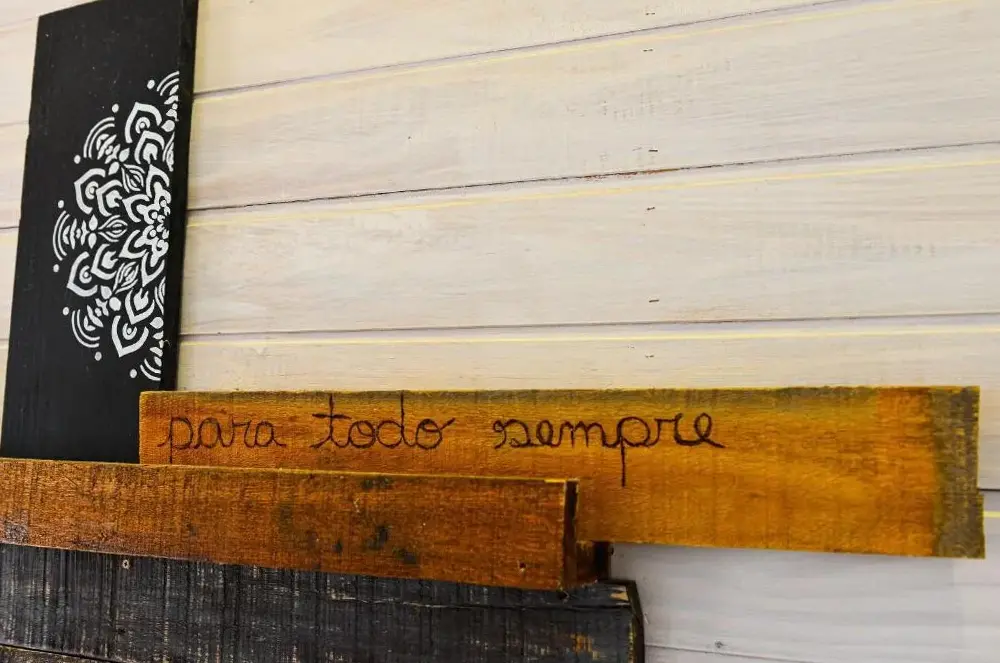 para todo sempre